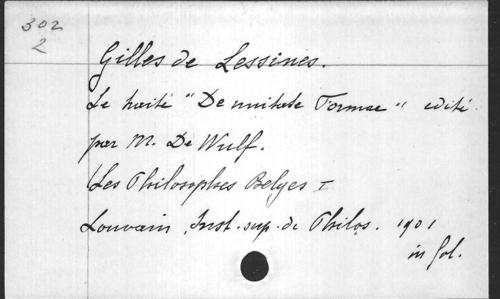 302
2
Gilles de Lessines.
Le traité "De unitate Formae" edité
par M. De Wulf.
(Les Philosophes Belges I
Louvain, Inst. sup. de Philos. 1901
in fol.